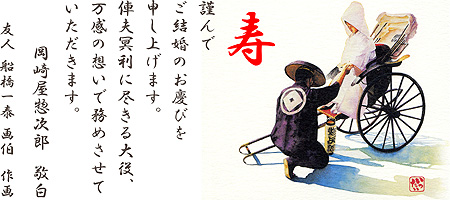 寿
謹んで
ご結婚のお慶びを
申し上げます。
俥夫冥利に尽きる大役、
万感の想いで務めさせて
いただきます。
岡崎屋惣次郎 敬白
友人 船橋一泰 画伯 作画